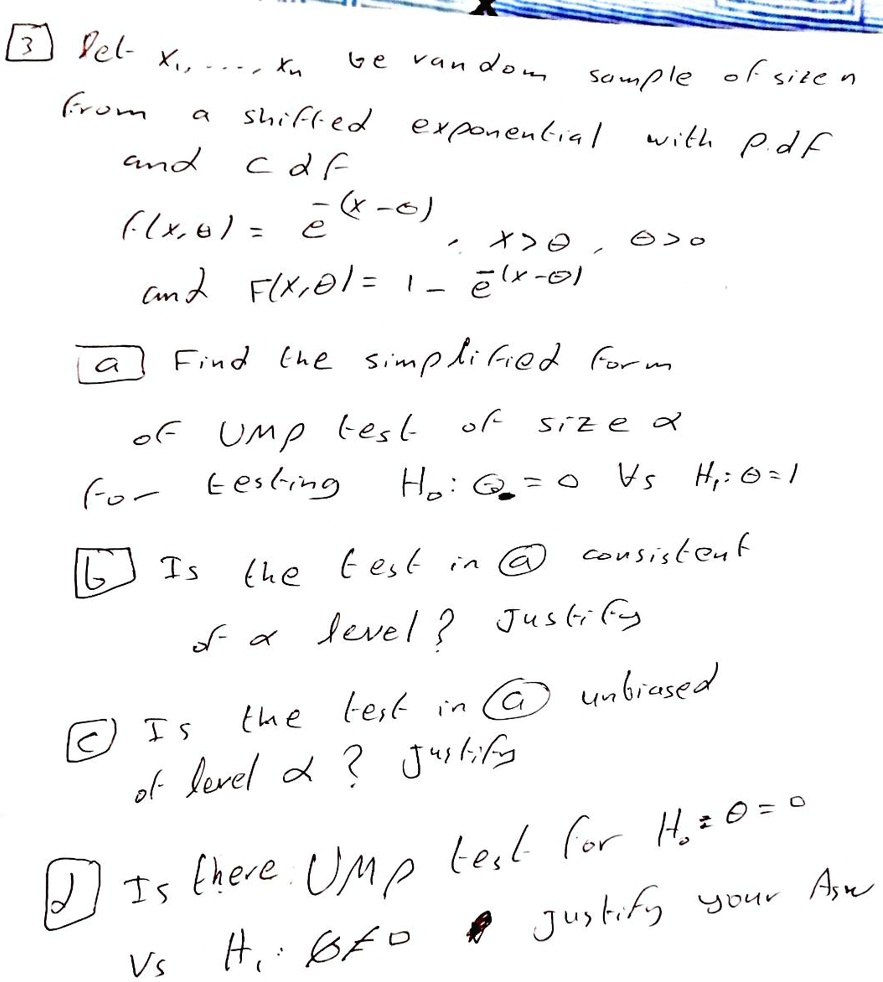 3 Let x₁, ..., xₙ be random sample of size n
from a shifted exponential with p.df
and cdf
f(x,θ) = e^-(x-θ), x>θ, θ>0
and F(x,θ) = 1 - e^-(x-θ)
a Find the simplified form
of UMP test of size α
for testing H₀: θ = 0 Vs H₁: θ=1
b Is the test in ⓐ consistent
of α level? Justify
c Is the test in ⓐ unbiased
of level α? Justify
d Is there UMP test for H₀: θ=0
Vs H₁: θ≠0 Justify your Asw